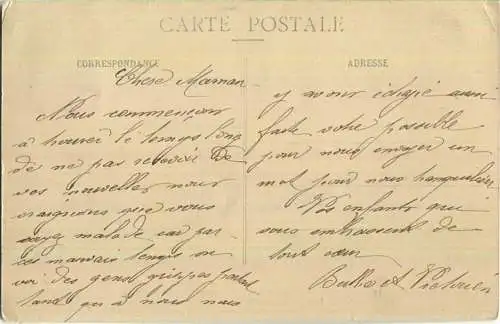 CARTE POSTALE
CORRESPONDANCE
ADRESSE
Chere Maman
Nous commençon
à trouver le temps long
de ne pas recevoir de
vos nouvelles nous
craignions que vous
soyez malade car par
ces mauvais temps on
voi des gens grippes partout
tant qu à nous nous
y avons échapé aussi
faite votre possible
pour nous envoyer un
mot pour nous tranquiliser
Vos enfants qui
vous embrassent de
tout cœur
et